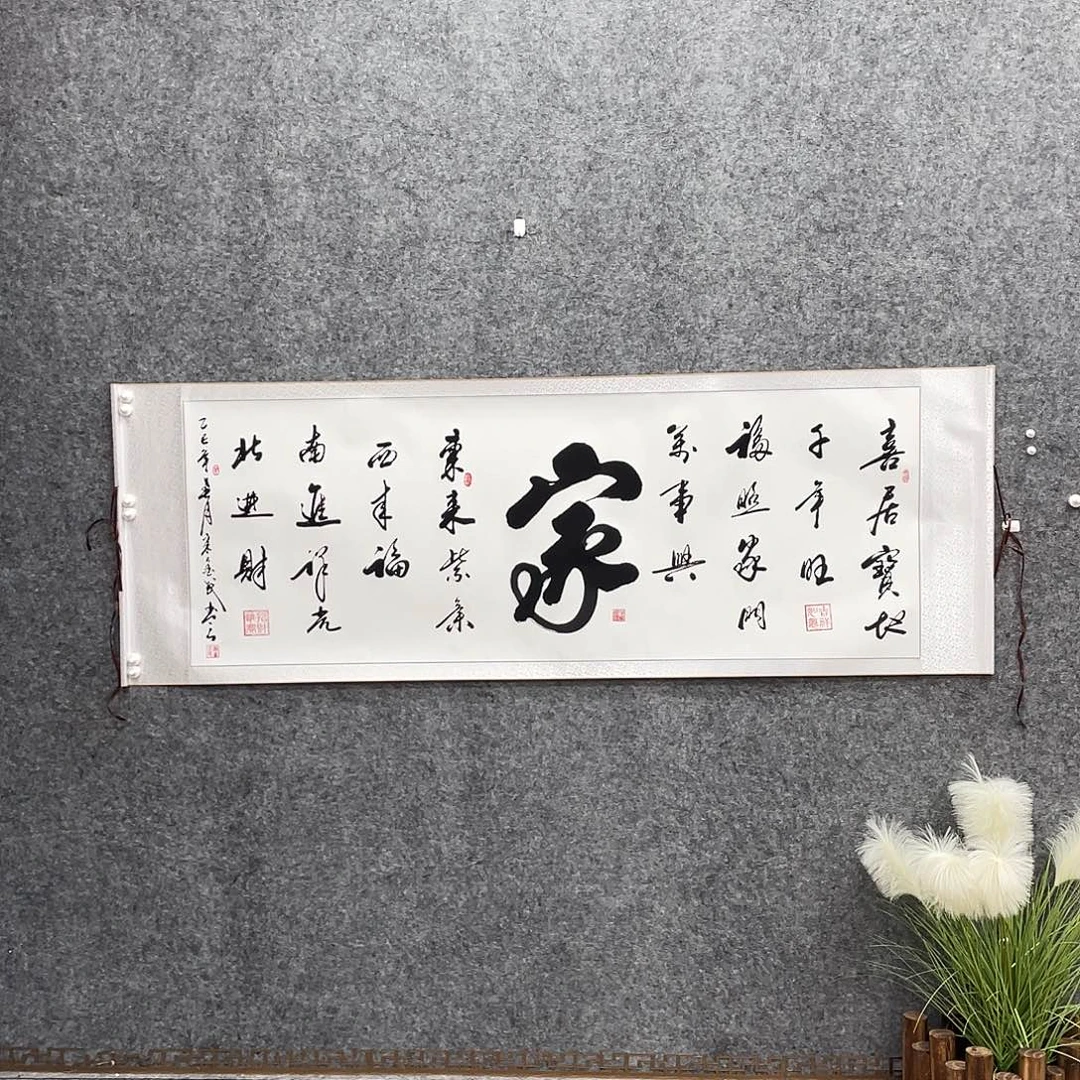 喜居寶地
千年旺
吉祥如意
福照家門
萬事興
家
東来紫氣
西来福
南進祥光
北進財
乙巳年月